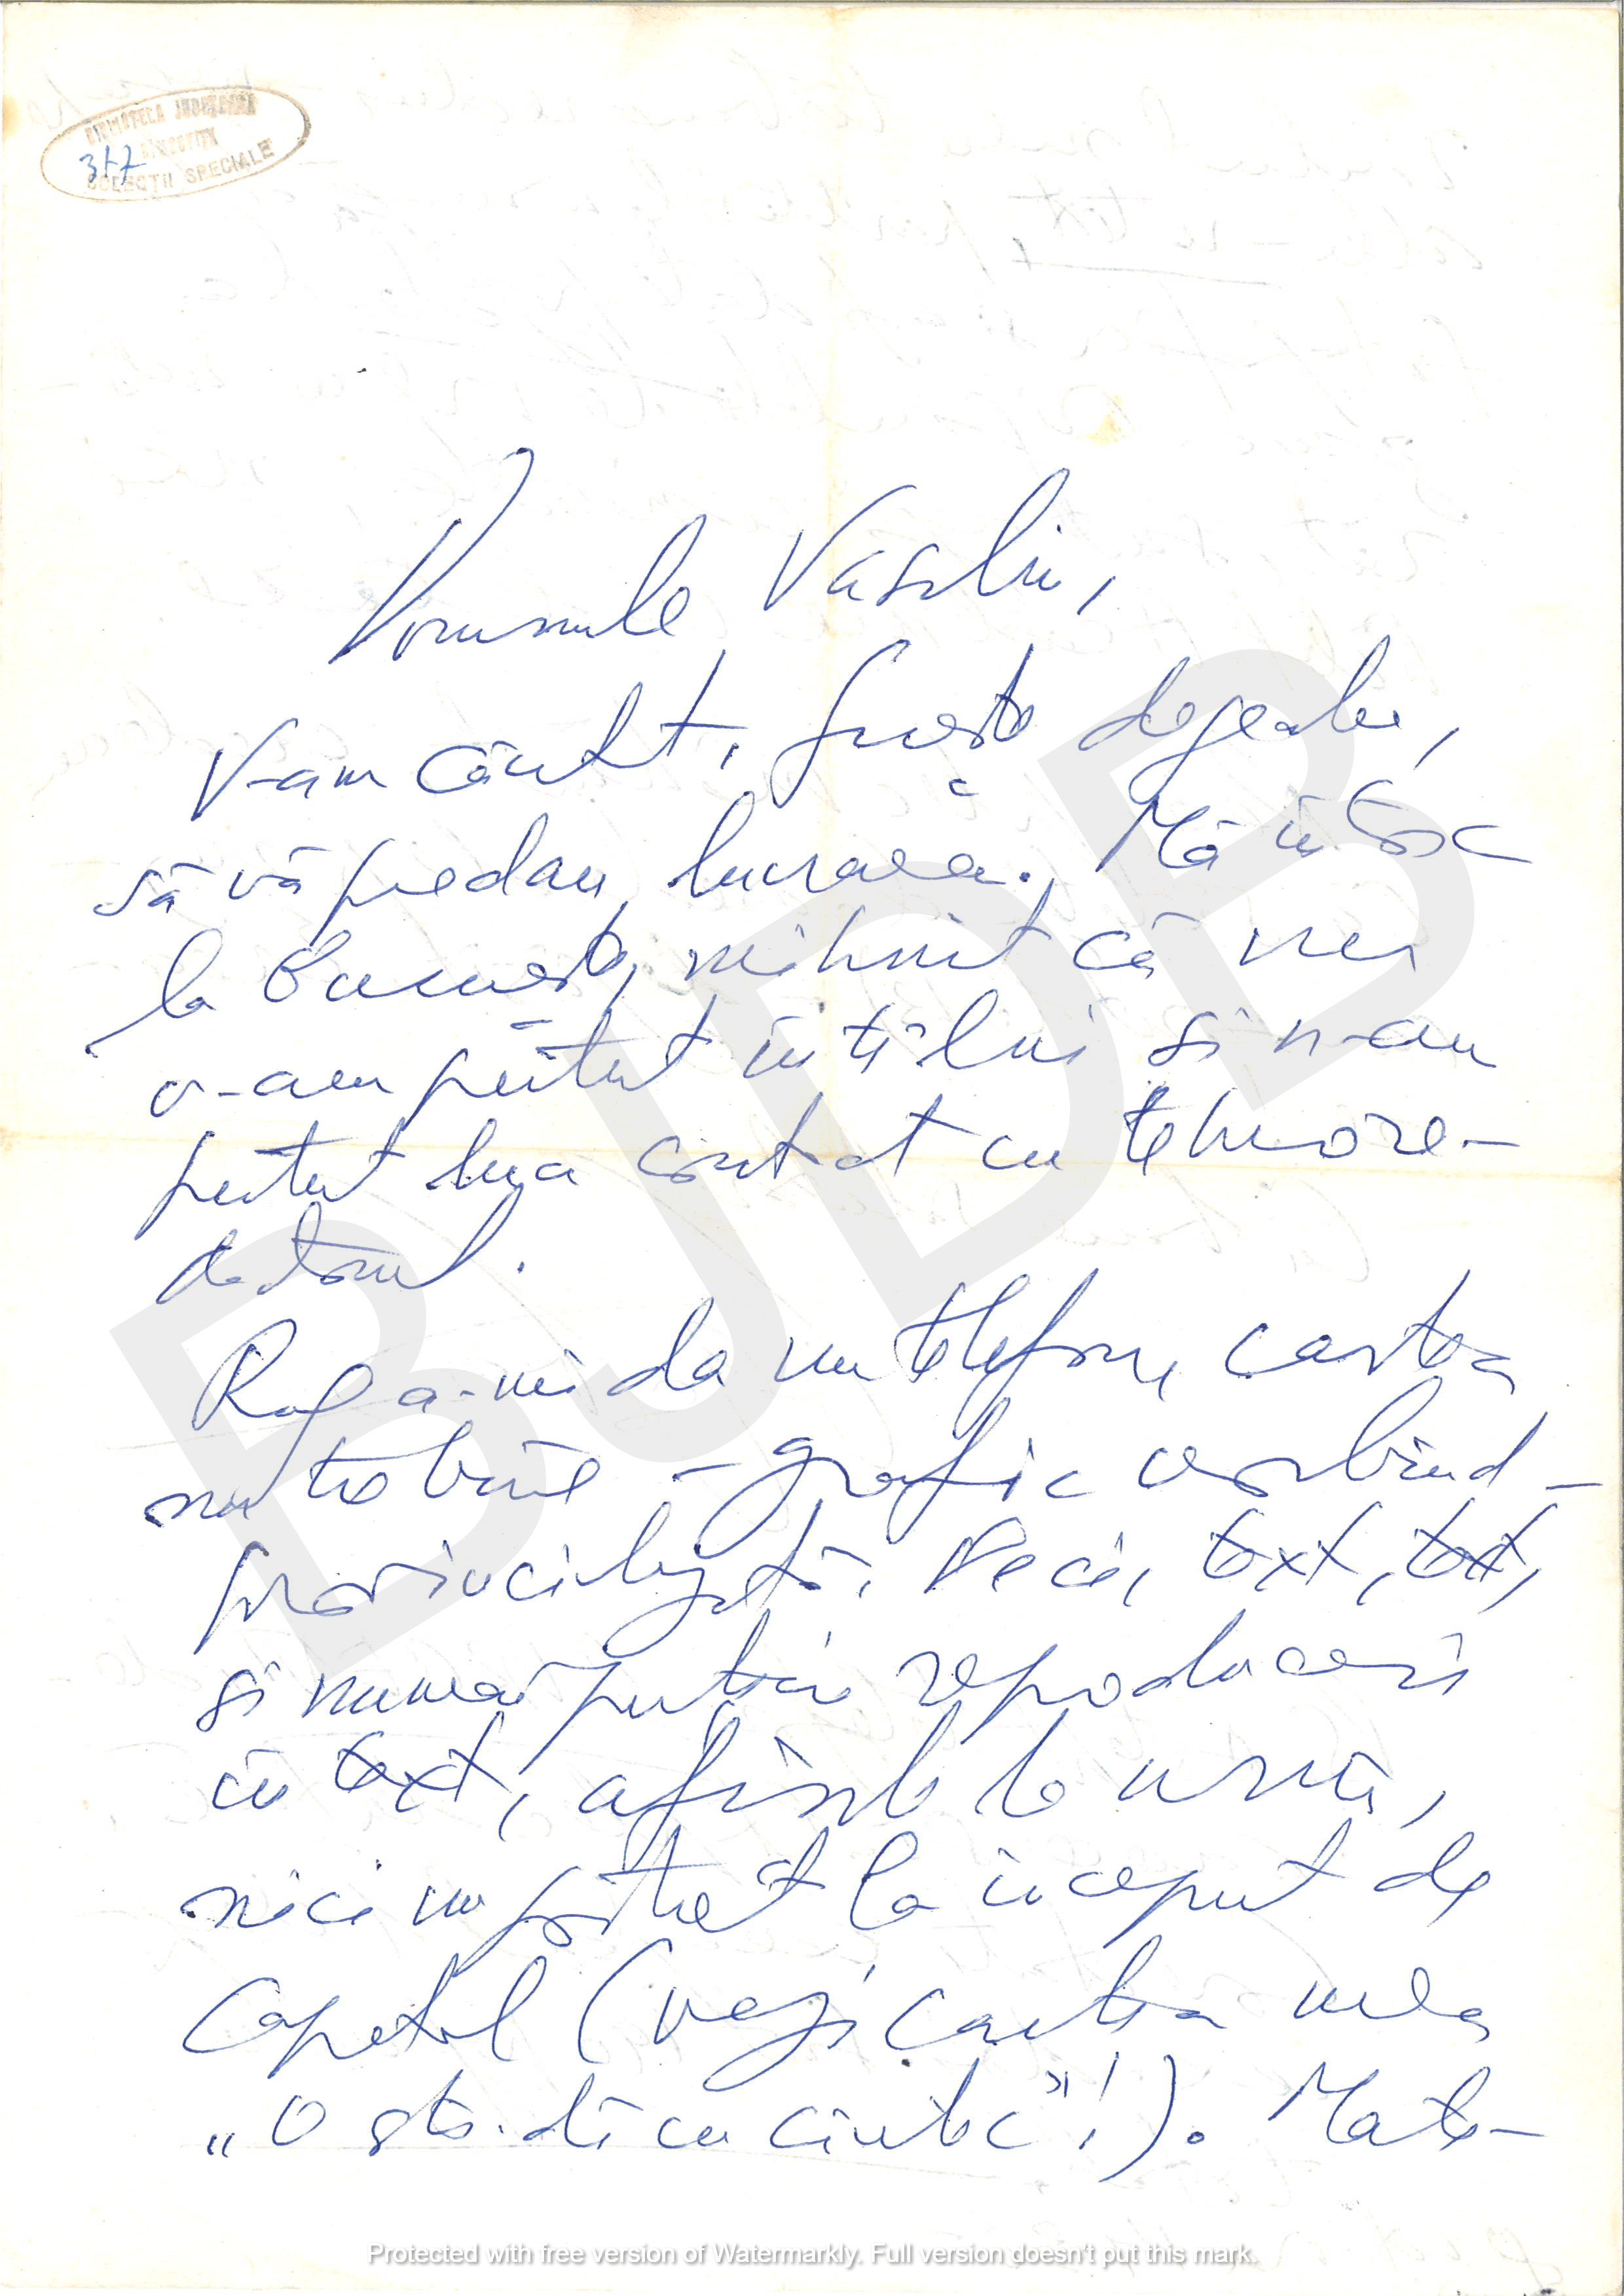 BIBLIOTECA JUDEȚEANĂ
317
COLECȚII SPECIALE
Domnule Vasiliu,
V-am căutat, firește degeaba,
să vă predau lucrarea. Mă întorc
la București, mîhnit că nu
v-am putut întîlni și n-am
putut lua contact cu tehnore-
dactorul.
Rog a-mi da un telefon, cartea
nu trebuie - grafic vorbind -
provincializată. Deci, text, text,
și numai puține reproduceri
în text, afișele la urmă,
nici un portret la început de
capitol (vezi cartea mea
„O stea dă cu cîntec"!). Mate-
BJDB
Protected with free version of Watermarkly. Full version doesn't put this mark.